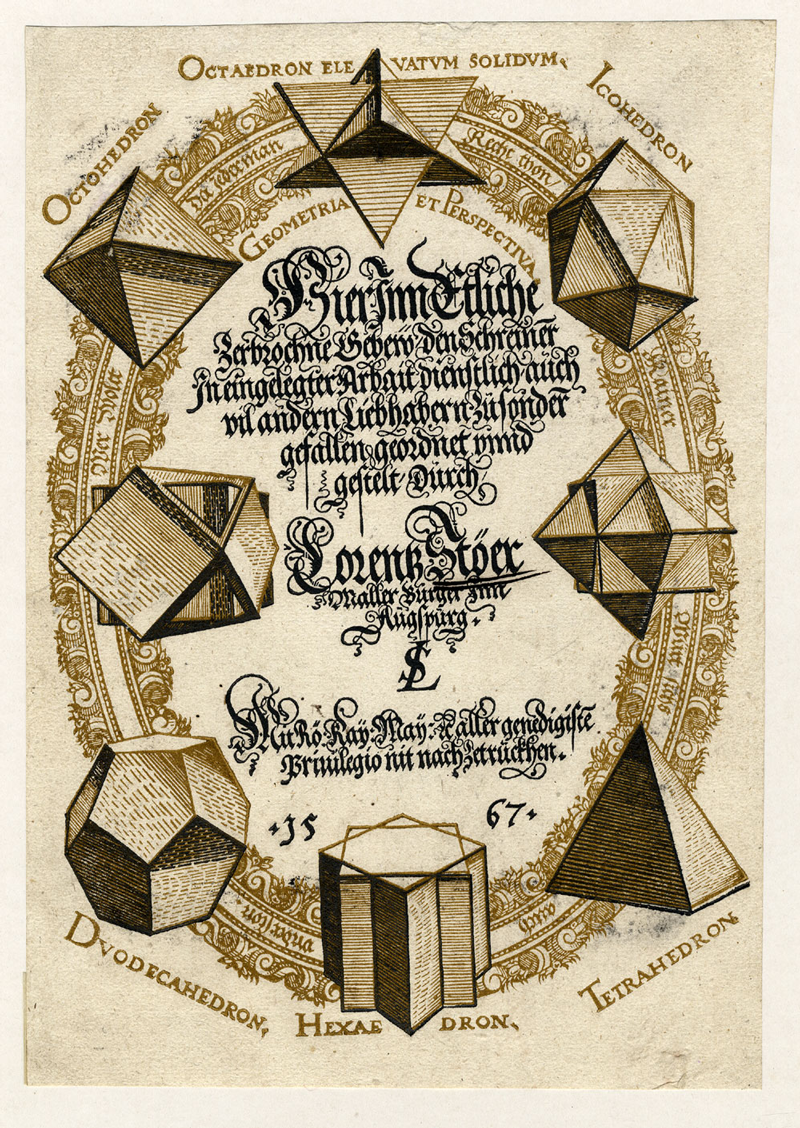 OCTAEDRON ELEVATVM SOLIDVM,
ICOHEDRON
OCTOHEDRON
GEOMETRIA ET PERSPECTIVA
Recht thon
Hier Inn Etliche
Zerbrochne Gebew, den Schreiner
In eingelegter Arbait dienstlich, auch
vil andern Liebhabern zu sonder
gefallen geordnet vnnd
gestelt. Durch
Lorentz Stöer
Maller Burger Inn
Augspurg.
LS
Mit Rö. Kay: May: &. aller genedigiste
Priuilegio nit nach zetruckhen.
.15 67.
DVODECAHEDRON,
HEXAEDRON,
TETRAHEDRON
Wer
kainer